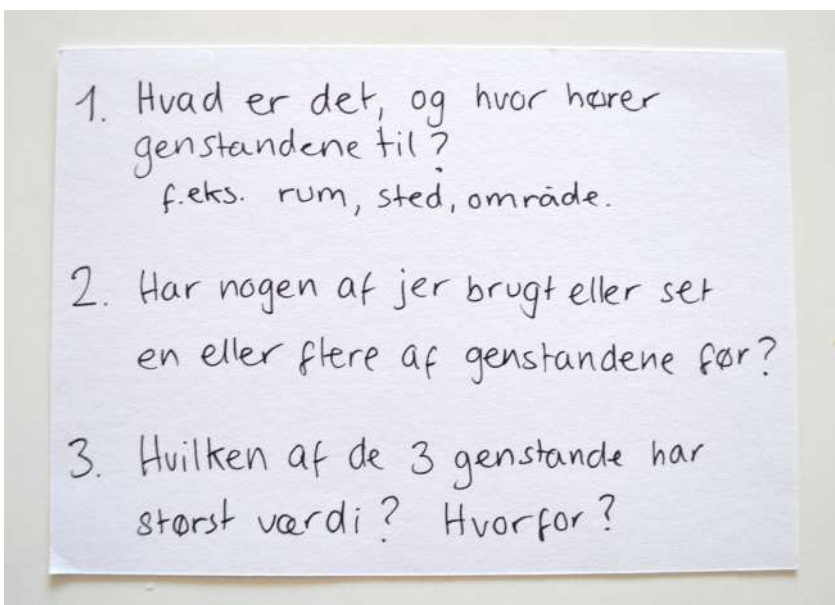 1. Hvad er det, og hvor hører
genstandene til?
f.eks. rum, sted, område.
2. Har nogen af jer brugt eller set
en eller flere af genstandene før?
3. Hvilken af de 3 genstande har
størst værdi? Hvorfor?